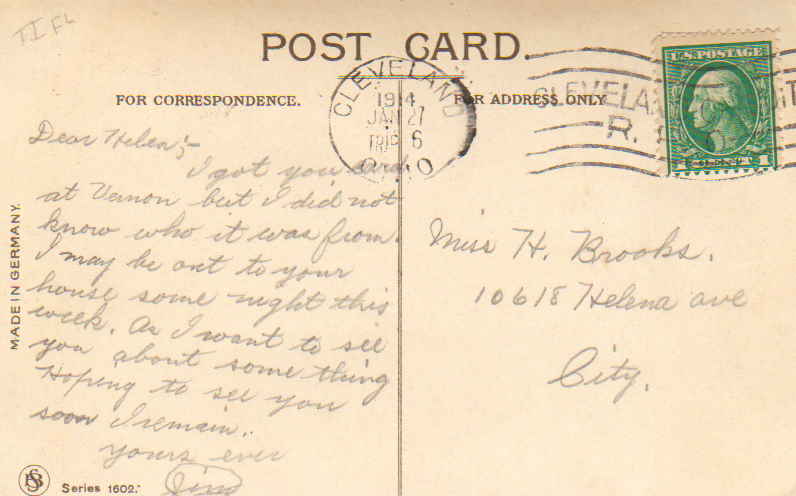 TIFL
POST CARD.
FOR CORRESPONDENCE.
FOR ADDRESS ONLY
CLEVELAND
1914
JAN 27
TRIP 6
O
CLEVELAND
R.
U.S. POSTAGE
1
Dear Helen;-
I got you card
at Vernon but I did not
know who it was from.
I may be out to your
house some night this
week. As I want to see
you about some thing
Hoping to see you
soon I remain.
yours ever
Jim
Miss H. Brooks.
10618 Helena ave
City.
MADE IN GERMANY.
Series 1602.